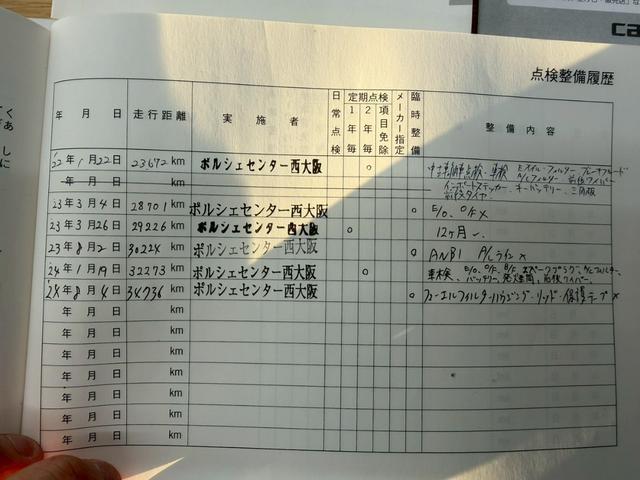 点検整備履歴
年 月 日 走行距離 実施者 日常点検 定期点検 1年毎 2年毎 項目免除 メーカー指定 臨時整備 整備内容
'22年1月22日 23672km ポルシェセンター西大阪 ○ 車検 Eオイル・フィルター ブレーキフルード
年 月 日 km A/Cフィルター 前後ワイパー
インポートステッカー、キーバッテリー、三角板
23年3月4日 28701km ポルシェセンター西大阪 ○ E/O、O/F×
23年3月26日 29226km ポルシェセンター西大阪 ○ 12ヶ月
23年8月2日 30224km ポルシェセンター西大阪 ○
24年1月19日 32273km ポルシェセンター西大阪 ○ 車検、E/O、O/F、B/F、スパークプラグ、A/Cフィルター、
バッテリー、発煙筒、前後ワイパー、
24年8月4日 34736km ポルシェセンター西大阪 ○ フューエルフィルターハウジング・リッド・保護テープ×
年 月 日 km
年 月 日 km
年 月 日 km
年 月 日 km
年 月 日 km
年 月 日 km
年 月 日 km
年 月 日 km